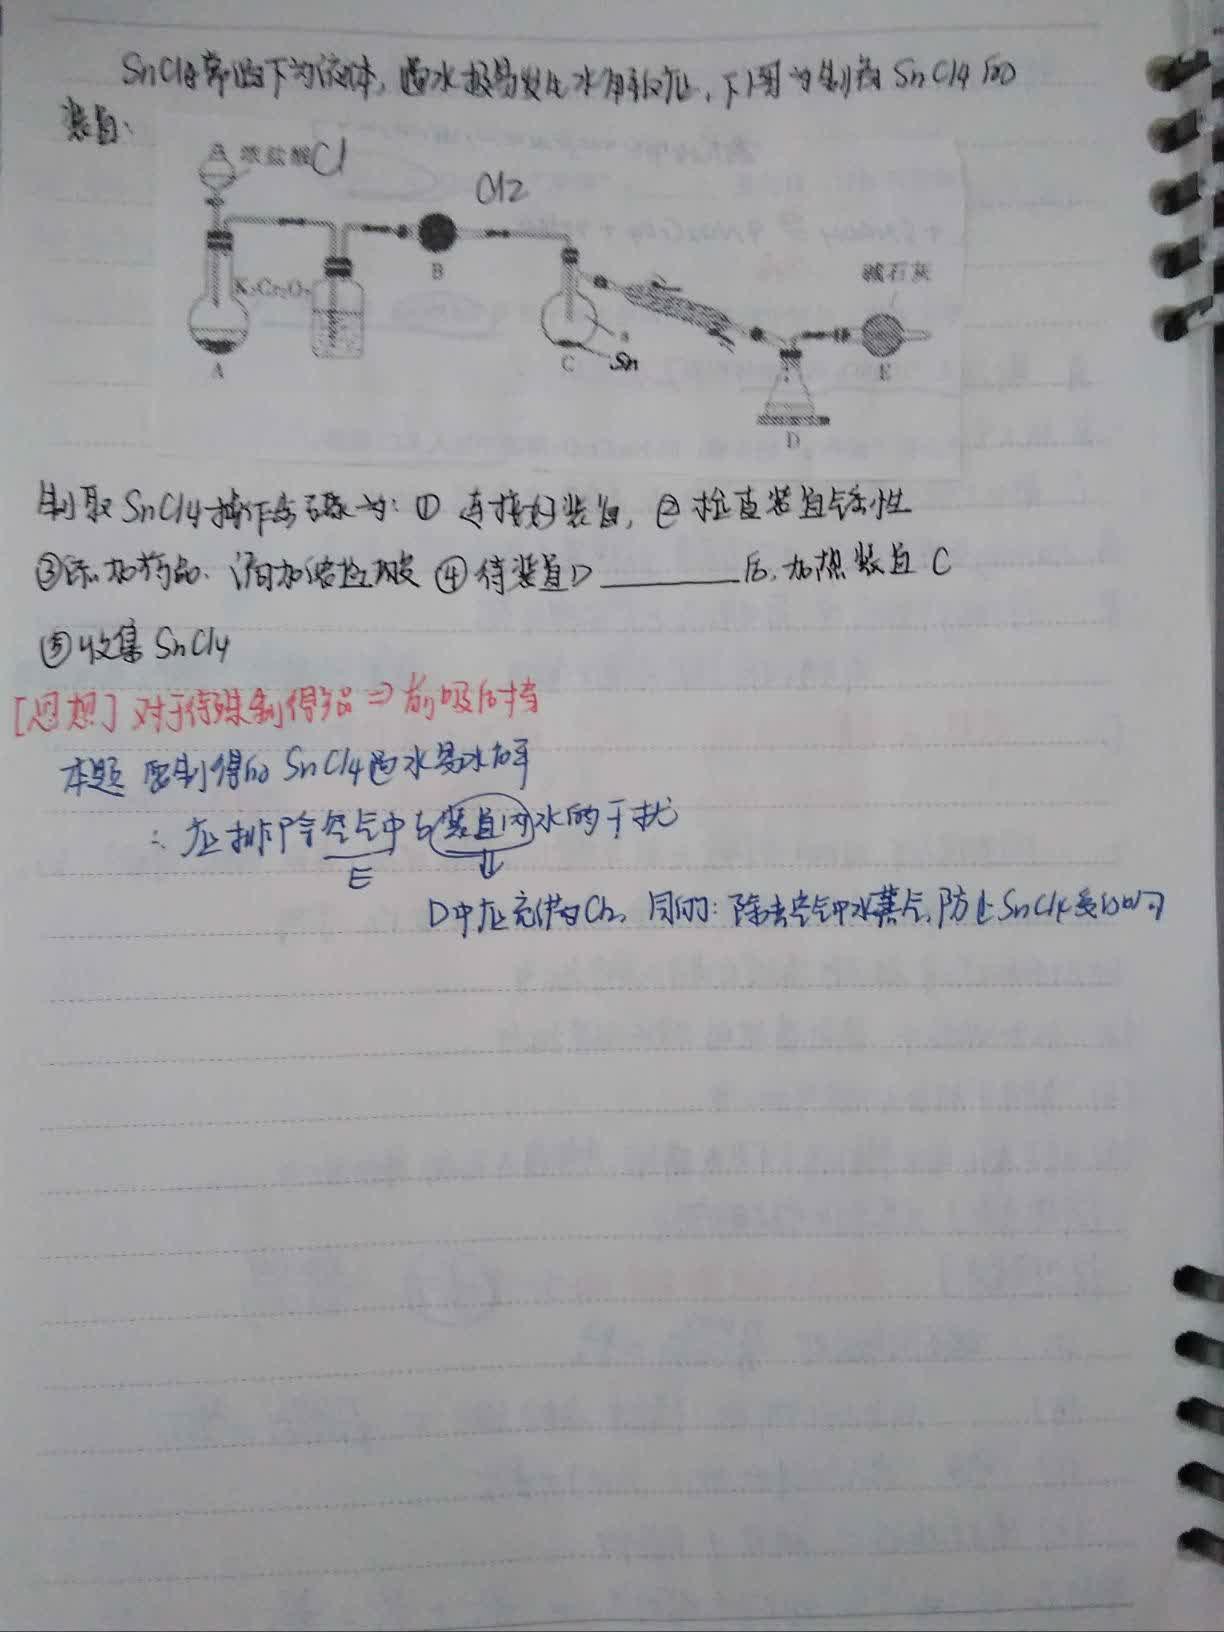 SnCl4常温下为液体,遇水极易发生水解反应,下图为制备SnCl4的
装置:
浓盐酸 Cl
Cl2
K2Cr2O7
碱石灰
A
B
C
Sn
D
E
制取SnCl4操作步骤为:① 连接好装置,② 检查装置气密性
③添加药品、滴加浓盐酸 ④待装置D________后,加热装置C
⑤收集SnCl4
[思想]对于特殊制得产品⇒前吸后挡
本题 要制得的SnCl4遇水易水解
∴应排除空气中与装置内水的干扰
E
D中应充满Cl2, 目的:除去空气中水蒸气,防止SnCl4